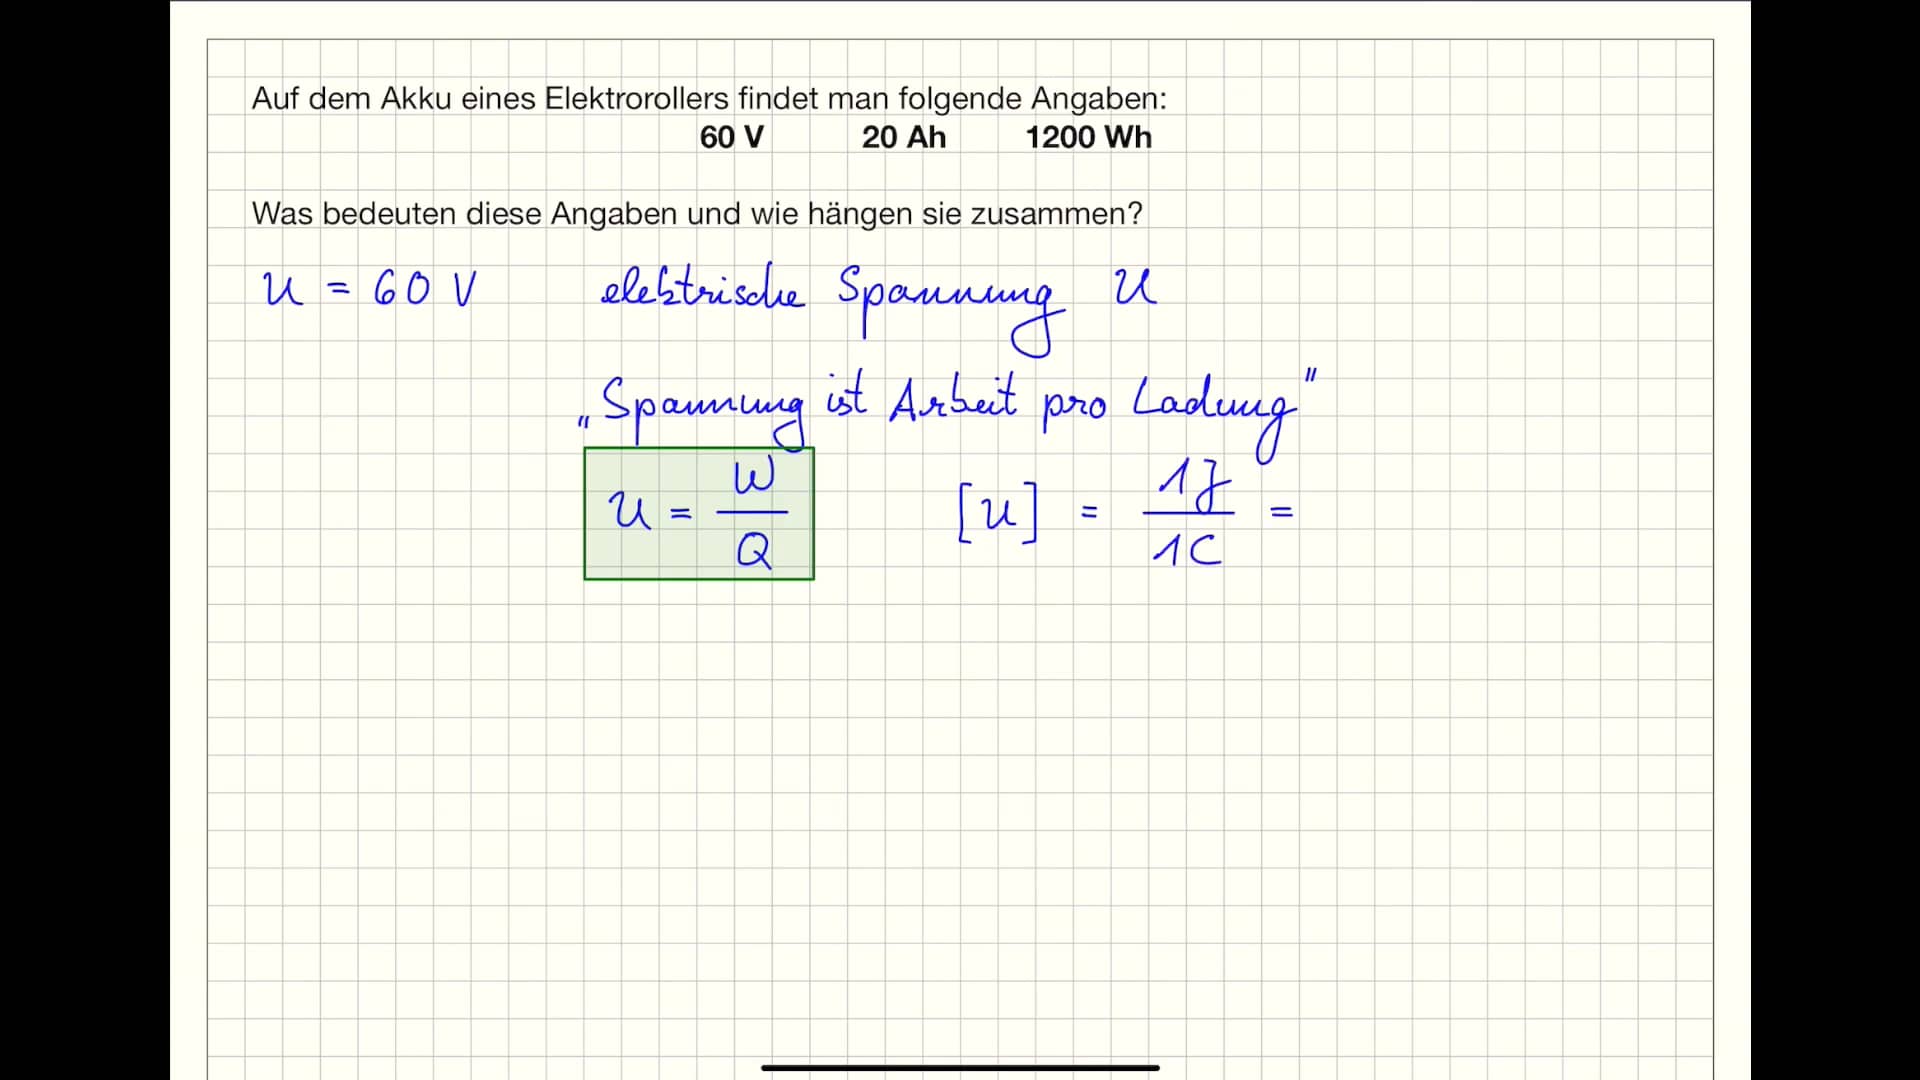 Auf dem Akku eines Elektrorollers findet man folgende Angaben:
60 V 20 Ah 1200 Wh
Was bedeuten diese Angaben und wie hängen sie zusammen?
U = 60 V elektrische Spannung U
„Spannung ist Arbeit pro Ladung"
U = W/Q [U] = 1J/1C =